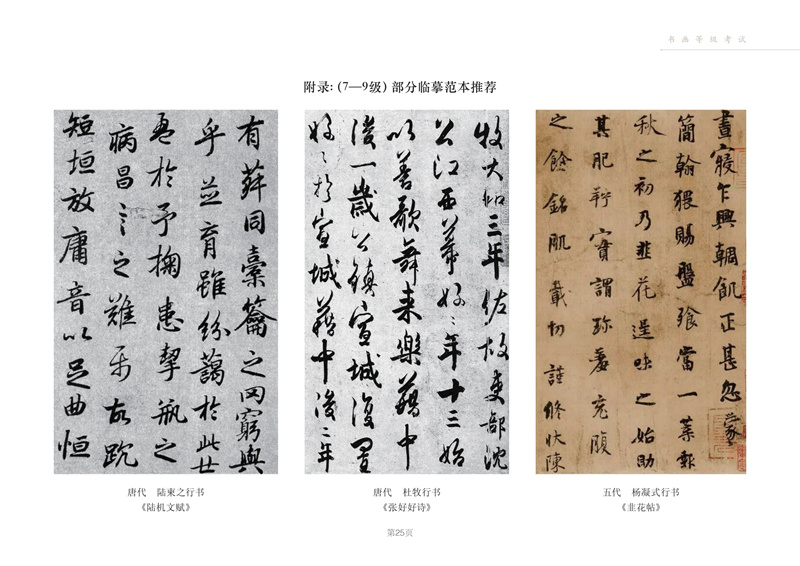 书画等级考试
附录：（7—9级）部分临摹范本推荐
有菽同橐籥之罔窮與
乎並育雖紛藹於此世
盈於予掬患挈瓶之
病昌言之難屬故踸
短垣放庸音以足曲恒
牧大和三年佐故吏部沈
公江西幕好〻年十三始
以善歌舞来樂籍中
後一歲公鎮宣城復置
好〻於宣城籍中後二年
晝寢乍興輖飢正甚忽蒙
簡翰猥賜盤飧當一葉報
秋之初乃韭花逞味之始助
其肥羜實謂珍羞充腹
之餘銘肌載切謹修狀陳
唐代 陆柬之行书
《陆机文赋》
唐代 杜牧行书
《张好好诗》
五代 杨凝式行书
《韭花帖》
第25页